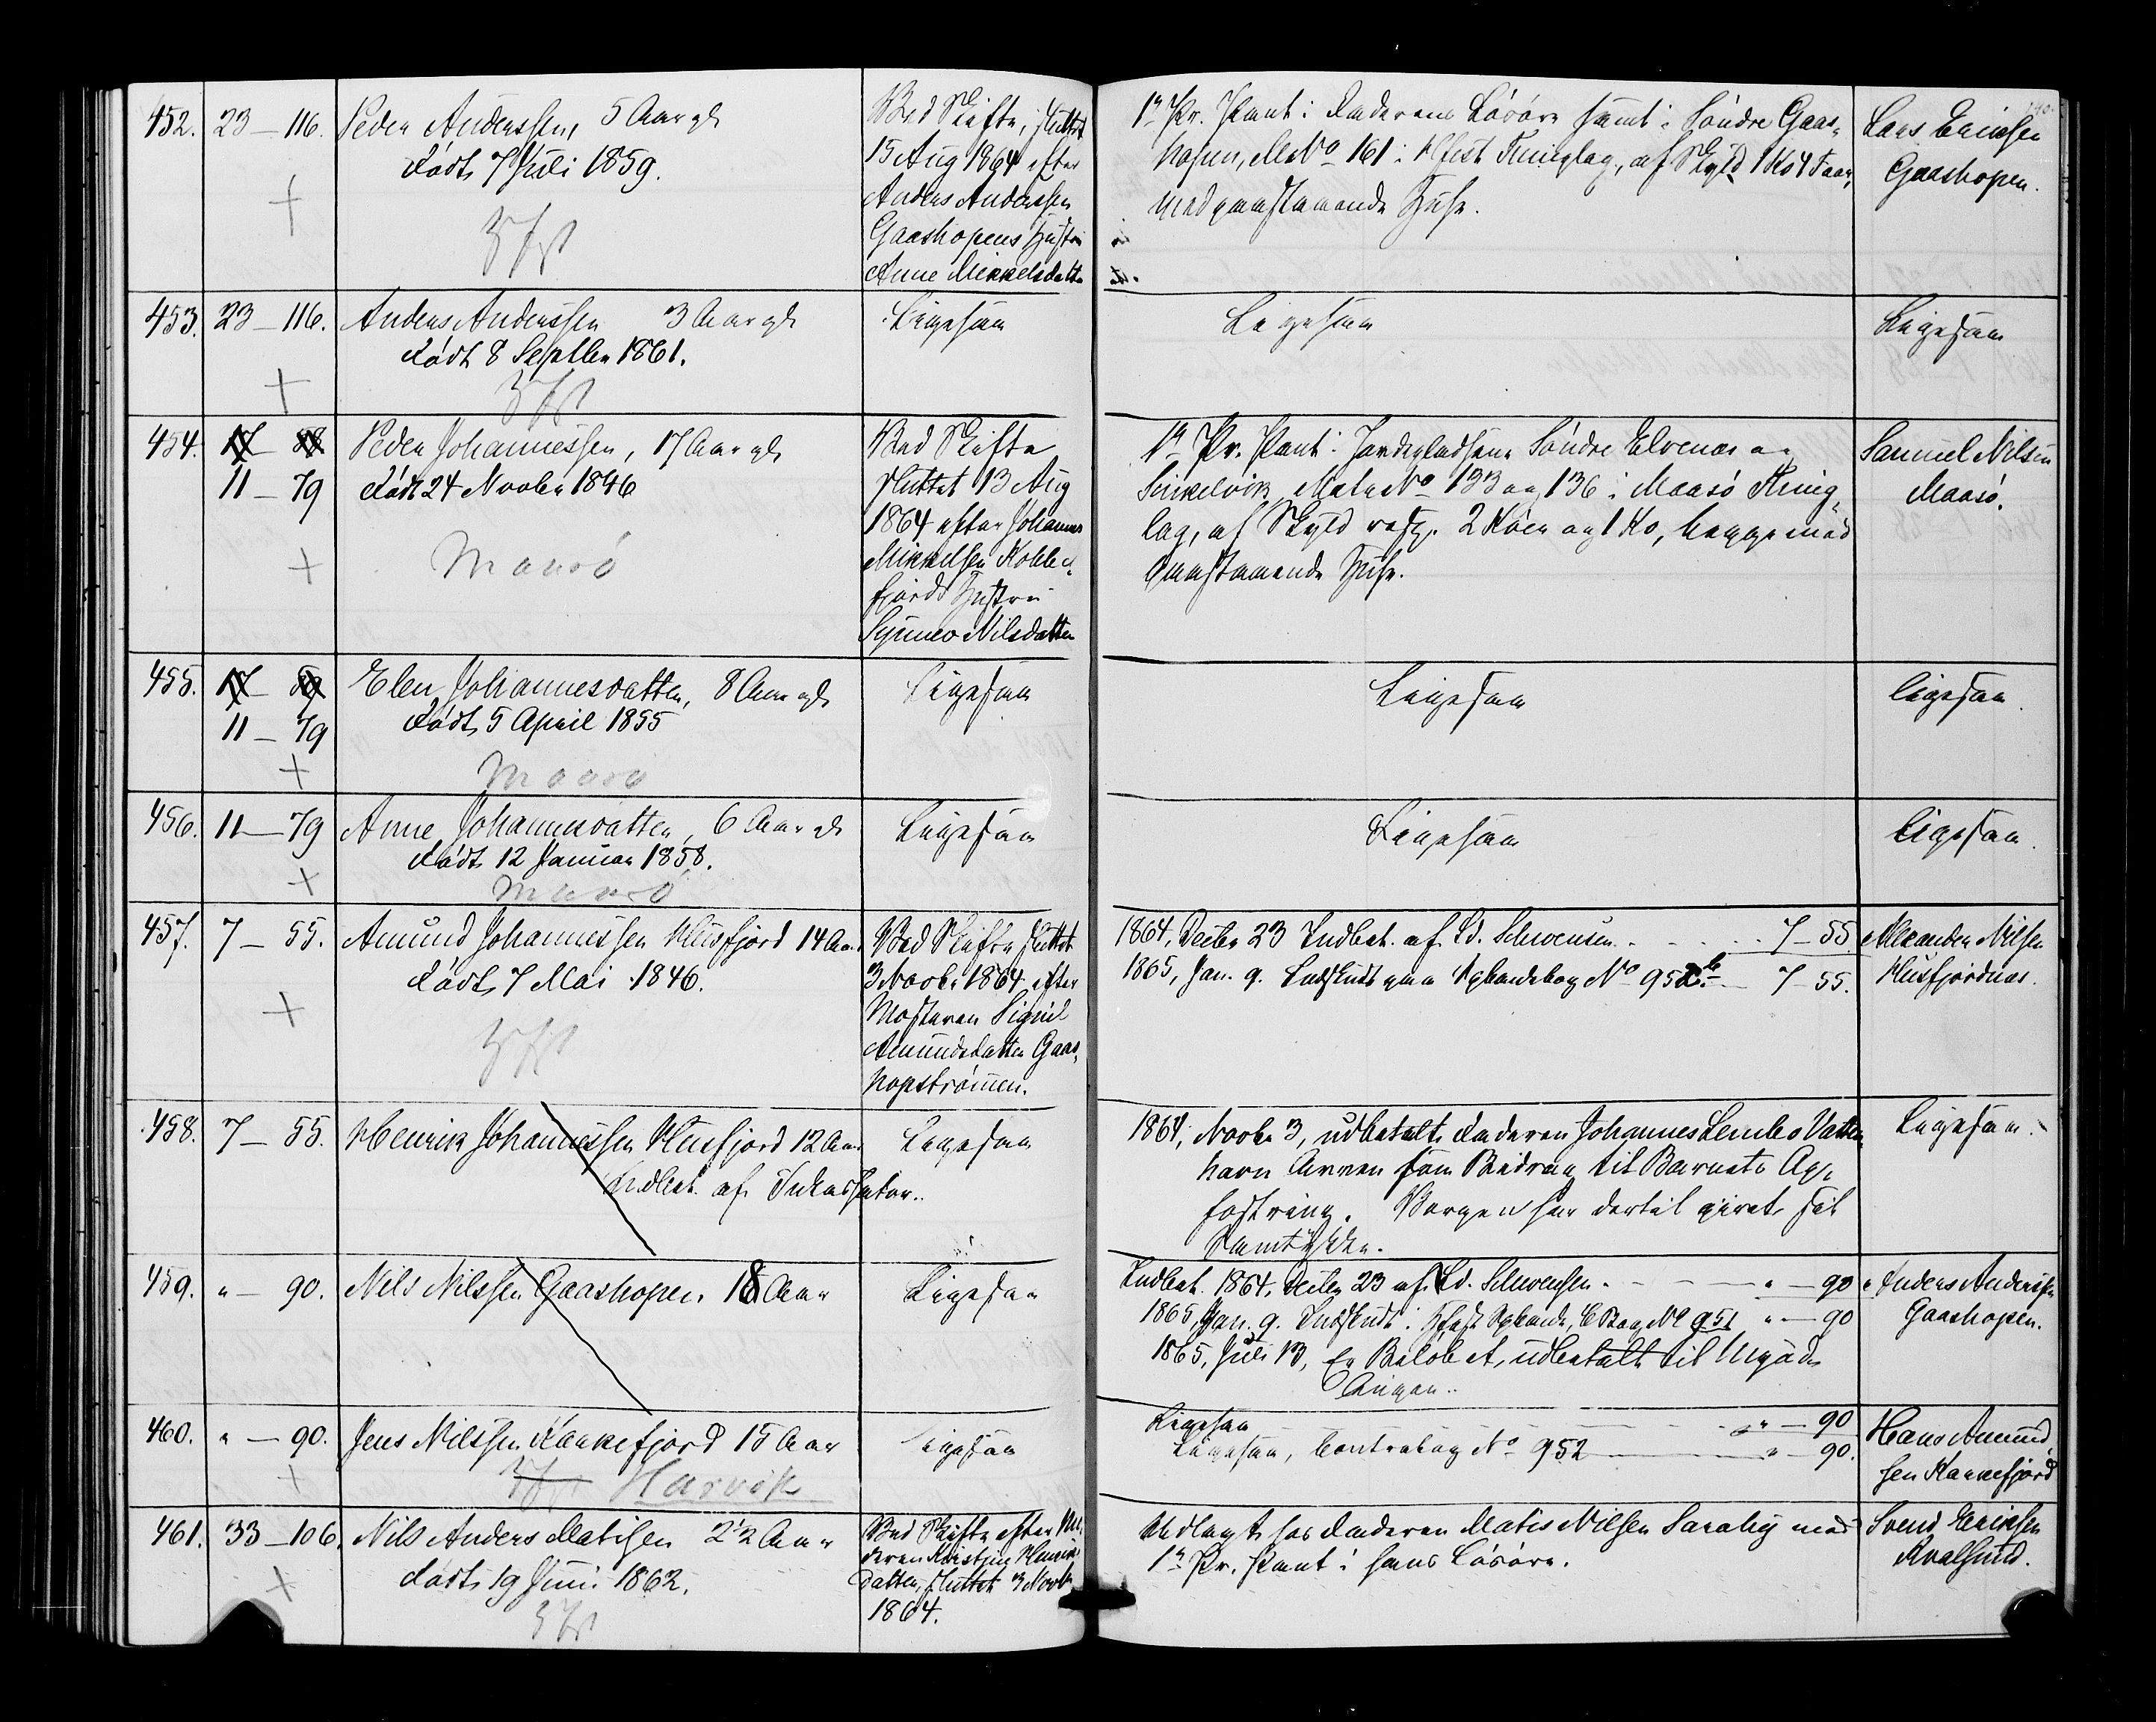 452. 23 – 116. Peder Anderssen, 5 Aar gl.
Født 7 Juli 1859.
+
Hft
Ved Skifte, sluttet
15 Aug 1864 efter
Anders Anderssen
Gaashopens Hustru
Anne Mikkelsdatter
1ste Pr. Pant i Faderens Løsøre samt i Søndre Gaas-
hopen, MNo 161 i Hfest Thinglag, af Skyld 1 Ko 4 Faar,
med paastaaende Huse.
Lars Erichsen
Gaashopen.
453. 23 – 116. Anders Anderssen 3 Aar gl.
Født 8 Septbr 1861.
+
Hft
Ligesaa
Ligesaa
Ligesaa
454. 17 58 Peder Johannessen, 17 Aar gl.
11 – 79 Født 24 Novbr 1846
+
Maasø
Ved Skifte
sluttet 13 Aug
1864 efter Johannes
Mikkelsen Kobbe-
fjords Hustru
Synnev Nilsdatter
1ste Pr. Pant i Jordepladsene Søndre Elvenæs og
Matr No 133 og 136 i Maasø Thing-
lag, af Skyld resp. 2 Køer og 1 Ko, begge med
paastaaende Huse.
Samuel Nilsen
Maasø.
455. 17 59 Elen Johannesdatter, 8 Aar gl.
11 – 79 Født 5 April 1855
+
Maasø
Ligesaa
Ligesaa
ligesaa.
456. 11 – 79 Anne Johannesdatter, 6 Aar gl.
Født 12 Januar 1858.
+
Maasø
Ligesaa
Ligesaa
ligesaa.
457. 7 – 55. Amund Johannessen Husfjord 14 Aar
Født 7 Mai 1846.
+
Hft
Ved Skifte sluttet
3 Novbr 1864 efter
Mosteren Signil
Amundsdatter Gaas-
hopstrømmen.
1864, Decbr 23 Indbet. af Ld. Schwensen . . . . 7 – 55
1865, Jan. 9. Indskudt paa Spbankebog No 952 b – 7 – 55.
Alexander Nilsen
Husfjordnæs.
458. 7 – 55. Henrik Johannessen Husfjord 12 Aar
Indbet. af
Ligesaa
1864, Novbr 3, udbetalt Faderen Johannes Lembo Vatten
havn Arven som Bidrag til Barnets Op-
fostring. Værgen har dertil givet sit
Samtykke.
Ligesaa.
459. " – 90. Nils Nilssen Gaashopen 18 Aar
Ligesaa
Indbet. 1864, Decbr 23 af Ld. Schwensen . – – – " – 90
1865, Jan. 9. Indskudt i Hfest Spbank, C Bog No 951 " – 90
1865, Juli 13, Er Beløbet, udbetalt til Myndlingen..
Anders Anderssen
Gaashopen.
460. " – 90. Jens Nilssen Kankefjord 15 Aar
+
Hft Hasvik
Ligesaa
Ligesaa – – – " – 90
Ligesaa, Contrabog No 952 – " – 90.
Hans Amund
sen Kankefjord
461. 33 – 106. Nils Anders Matisen 2 1/2 Aar
Født 19 Juni 1862.
+
Hft
Ved Skifte efter Mo
deren Kirstine Henriks
datter, sluttet 3 Novbr
1864.
Udlagt hos Faderen Matis Nilsen Saraby med
1ste Pr. Pant i hans Løsøre.
Svend Erichsen
Kvalsund.